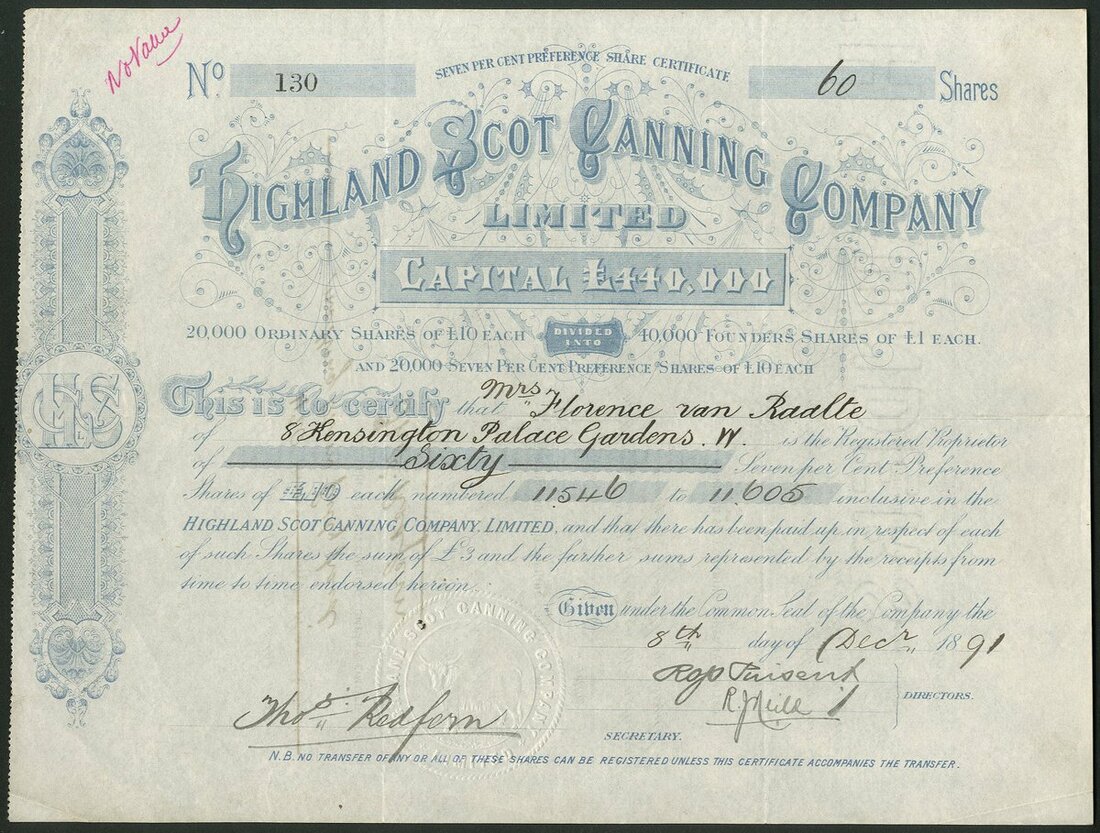 No Value
SEVEN PER CENT PREFERENCE SHARE CERTIFICATE
No 130
60 Shares
HIGHLAND SCOT CANNING COMPANY
LIMITED
CAPITAL £440,000
20,000 ORDINARY SHARES OF £10 EACH DIVIDED INTO 40,000 FOUNDERS SHARES OF £1 EACH.
AND 20,000 SEVEN PER CENT PREFERENCE SHARES OF £10 EACH
This is to certify that Mrs Florence van Raalte
of 8 Kensington Palace Gardens. W. is the Registered Proprietor
of Sixty Seven per Cent Preference
Shares of £10 each numbered 11546 to 11605 inclusive in the
HIGHLAND SCOT CANNING COMPANY, LIMITED, and that there has been paid up in respect of each
of such Shares the sum of £3 and the further sums represented by the receipts from
time to time endorsed hereon.
Given under the Common Seal of the Company the
8th day of Decr 1891
DIRECTORS.
Thos. Redfern
SECRETARY.
N.B. NO TRANSFER OF ANY OR ALL OF THESE SHARES CAN BE REGISTERED UNLESS THIS CERTIFICATE ACCOMPANIES THE TRANSFER.